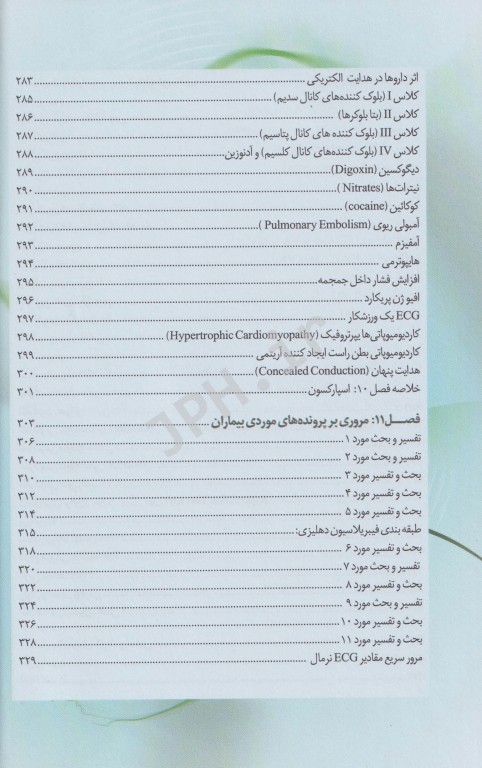 اثر داروها در هدایت الکتریکی ........ ۲۸۳
کلاس I (بلوک کننده‌های کانال سدیم) ........ ۲۸۵
کلاس II (بتا بلوکرها) ........ ۲۸۶
کلاس III (بلوک کننده های کانال پتاسیم) ........ ۲۸۷
کلاس IV (بلوک کننده‌های کانال کلسیم) و آدنوزین ........ ۲۸۸
دیگوکسین (Digoxin) ........ ۲۸۹
نیترات‌ها (Nitrates) ........ ۲۹۰
کوکائین (cocaine) ........ ۲۹۱
آمبولی ریوی (Pulmonary Embolism) ........ ۲۹۲
آمفیزم ........ ۲۹۳
هایپوترمی ........ ۲۹۴
افزایش فشار داخل جمجمه ........ ۲۹۵
افیو ژن پریکارد ........ ۲۹۶
ECG یک ورزشکار ........ ۲۹۷
کاردیومیوپاتی‌ها یپرتروفیک (Hypertrophic Cardiomyopathy) ........ ۲۹۸
کاردیومیوپاتی بطن راست ایجاد کننده آریتمی ........ ۲۹۹
هدایت پنهان (Concealed Conduction) ........ ۳۰۰
خلاصه فصل ۱۰: اسپارکسون ........ ۳۰۱
فصل ۱۱: مروری بر پرونده‌های موردی بیماران ........ ۳۰۳
تفسیر و بحث مورد ۱ ........ ۳۰۶
تفسیر و بحث مورد ۲ ........ ۳۰۸
بحث و تفسیر مورد ۳ ........ ۳۱۰
بحث و تفسیر مورد ۴ ........ ۳۱۲
بحث و تفسیر مورد ۵ ........ ۳۱۴
طبقه بندی فیبریلاسیون دهلیزی: ........ ۳۱۵
بحث و تفسیر مورد ۶ ........ ۳۱۸
تفسیر و بحث مورد ۷ ........ ۳۲۰
بحث و تفسیر مورد ۸ ........ ۳۲۲
تفسیر و بحث مورد ۹ ........ ۳۲۴
بحث و تفسیر مورد ۱۰ ........ ۳۲۶
بحث و تفسیر مورد ۱۱ ........ ۳۲۸
مرور سریع مقادیر ECG نرمال ........ ۳۲۹
JPH.ir